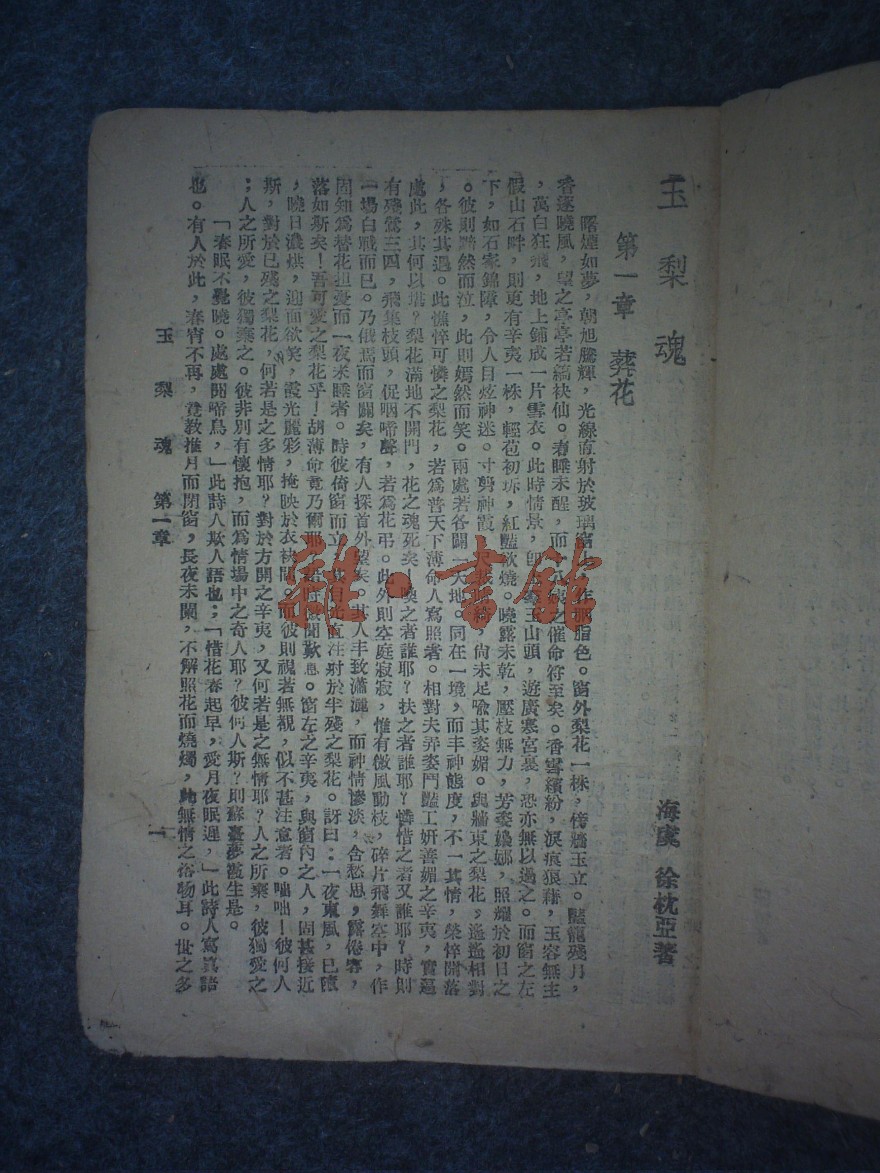 玉梨魂
海虞 徐枕亞著
第一章 葬花
曙煙如夢，朝旭騰輝，光線直射於玻璃窗上，作胭脂色。窗外梨花一株，傍牆玉立。豔籠殘月，
香逐曉風，望之亭亭若縞袂仙。春睡未醒，而之催命符至矣。香雪繽紛，淚痕狼藉，玉容無主
，萬白狂飛，地上鋪成一片雪衣。此時情景，卽玉山頭，遊廣寒宮裏，恐亦無以過之。而窗之左
假山石畔，則更有辛夷一株，輕苞初坼，紅豔欲燒。曉露未乾，壓枝無力，芳姿嬝娜，照耀於初日之
下，如石家錦障，令人目炫神迷。寸剪神霞，尺裁，尙未足喩其姿媚。與牆東之梨花，遙遙相對
。彼則黯然而泣，此則嫣然而笑。兩處若各闢一天地。同在一境，而丰神態度，不一其情，榮悴開落
，各殊其遇。此憔悴可憐之梨花，若爲普天下薄命人寫照者。相對夫弄姿鬥豔工妍善媚之辛夷，實逼
處此，其何以堪？梨花滿地不開門，花之魂死矣！喚之者誰耶？扶之者誰耶？憐惜之者又誰耶？時則
有殘鶯三四，飛集枝頭，促咽啼聲，若爲花弔。此外則空庭寂寂，惟有微風動枝，碎片飛舞空中，作
一場白戰而已。乃俄焉而窗闢矣，有人探首外望矣。其人丰致瀟灑，而神情慘淡，含愁思，露倦容，
固知爲替花担憂而一夜未睡者。時彼倚窗而立，其目光直注射於半殘之梨花。訝曰：一夜東風，已墮
落如斯矣！吾可愛之梨花乎！胡薄命竟乃爾耶？若時聞歎息。窗左之辛夷，與窗內之人，固甚接近
，曉日濃烘，迎面欲笑，霞光麗彩，掩映於衣袂間。而彼則視若無覩，似不甚注意者。咄咄！彼何人
斯，對於已殘之梨花，何若是之多情耶？對於方開之辛夷，又何若是之無情耶？人之所棄，彼獨愛之
；人之所愛，彼獨棄之。彼非別有懷抱，而爲情場中之奇人耶？彼何人斯？則蘇臺夢霞生是。
「春眠不覺曉。處處聞啼鳥，」此詩人欺人語也；「惜花春起早，愛月夜眠遲，」此詩人寫眞語
也。有人於此，春宵不再，竟教推月而閉窗，長夜未闌，不解照花而燒燭，此無情之俗物耳。世之多
玉梨魂 第一章 一
雜·書館